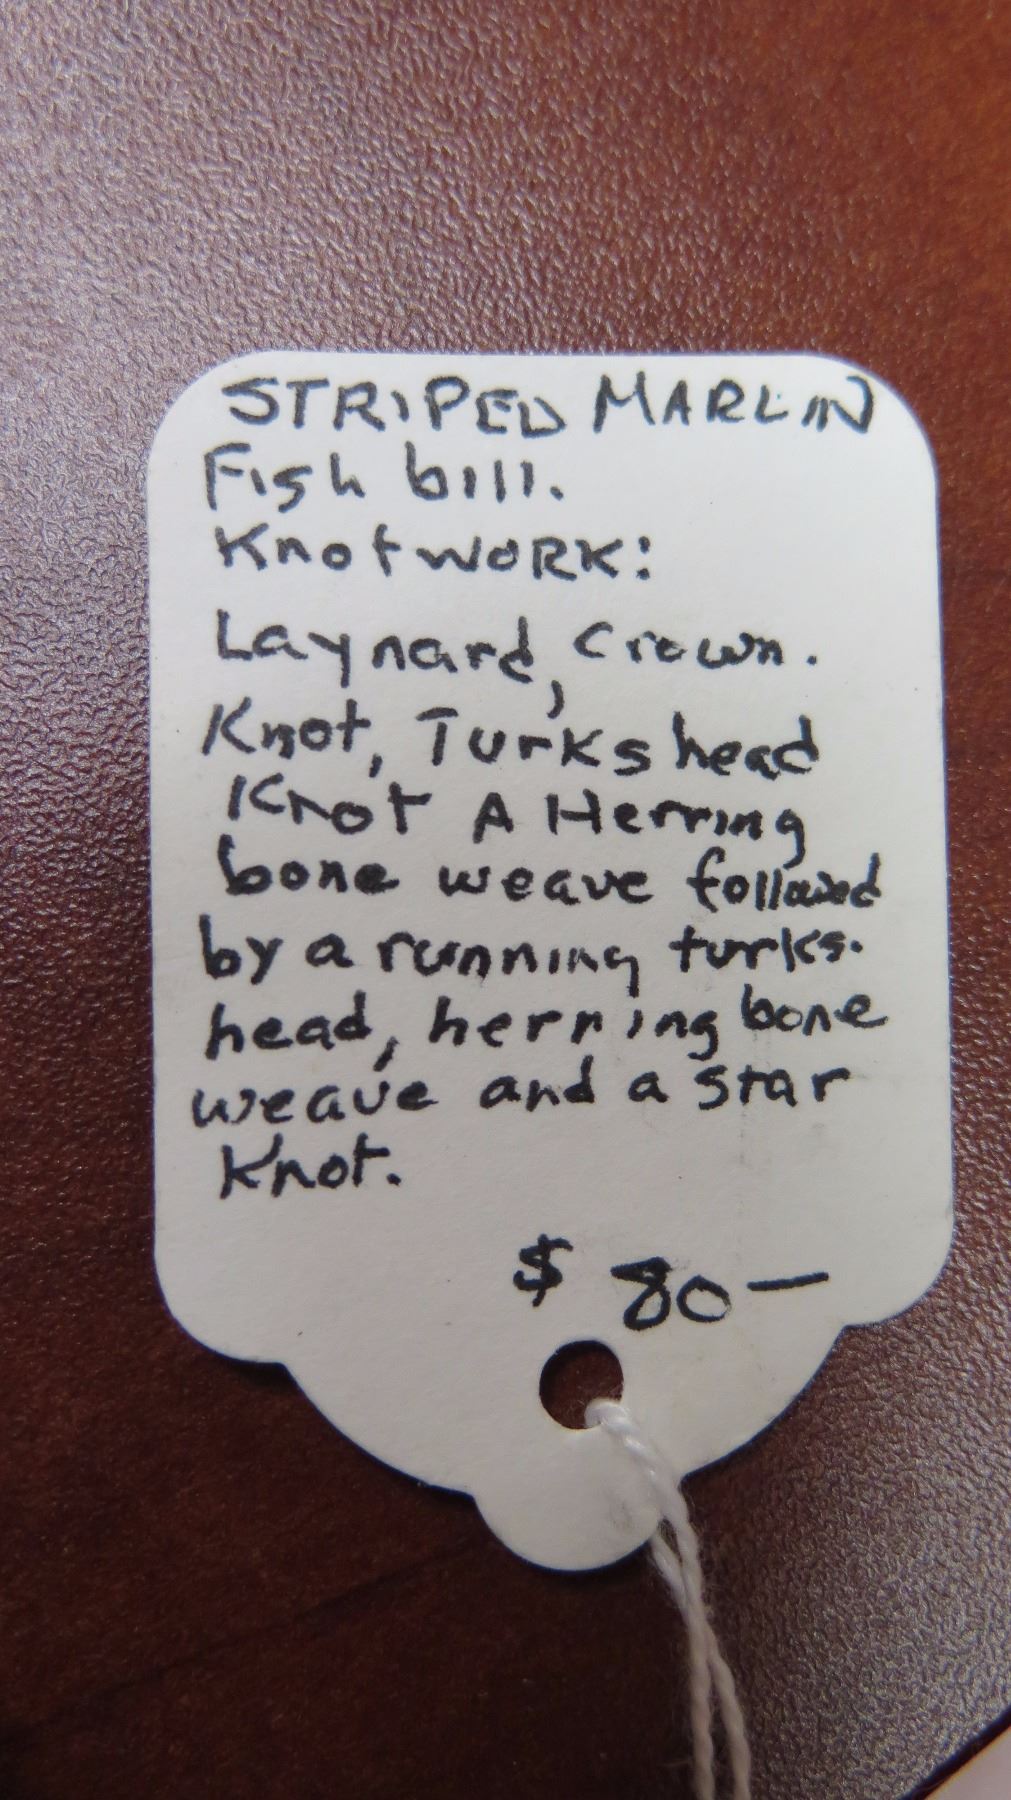 STRIPED MARLIN
Fish bill.
KnotWORK:
Laynard, Crown.
Knot, Turks head
Knot A Herring
bone weave followed
by a running turks.
head, herring bone
weave and a star
Knot.
$ 80—